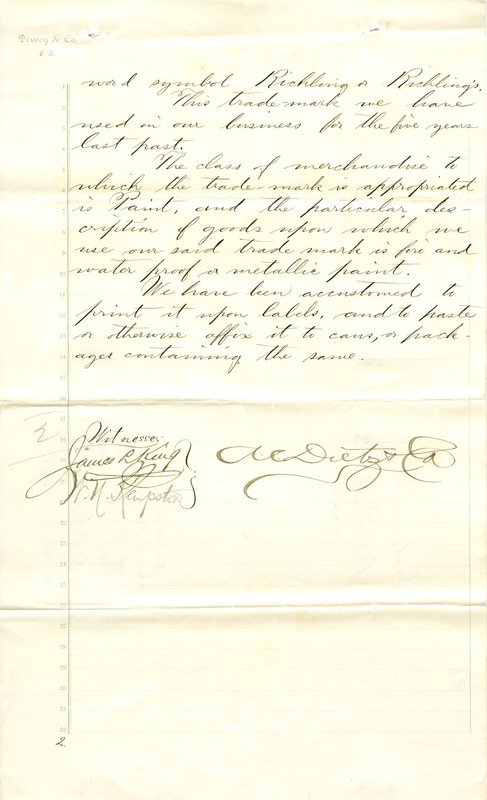 Dewey & Co.
word symbol Richling or Richling's.
This trade-mark we have
used in our business for the five years
last past.
The class of merchandise to
which the trade-mark is appropriated
is Paint, and the particular des-
cription of goods upon which we
use our said trade mark is fire and
water proof or metallic paint.
We have been accustomed to
print it upon labels, and to paste
or otherwise affix it to cans, or pack-
ages containing the same.
Witnesses
James L. King
A C Dietz & Co
2.